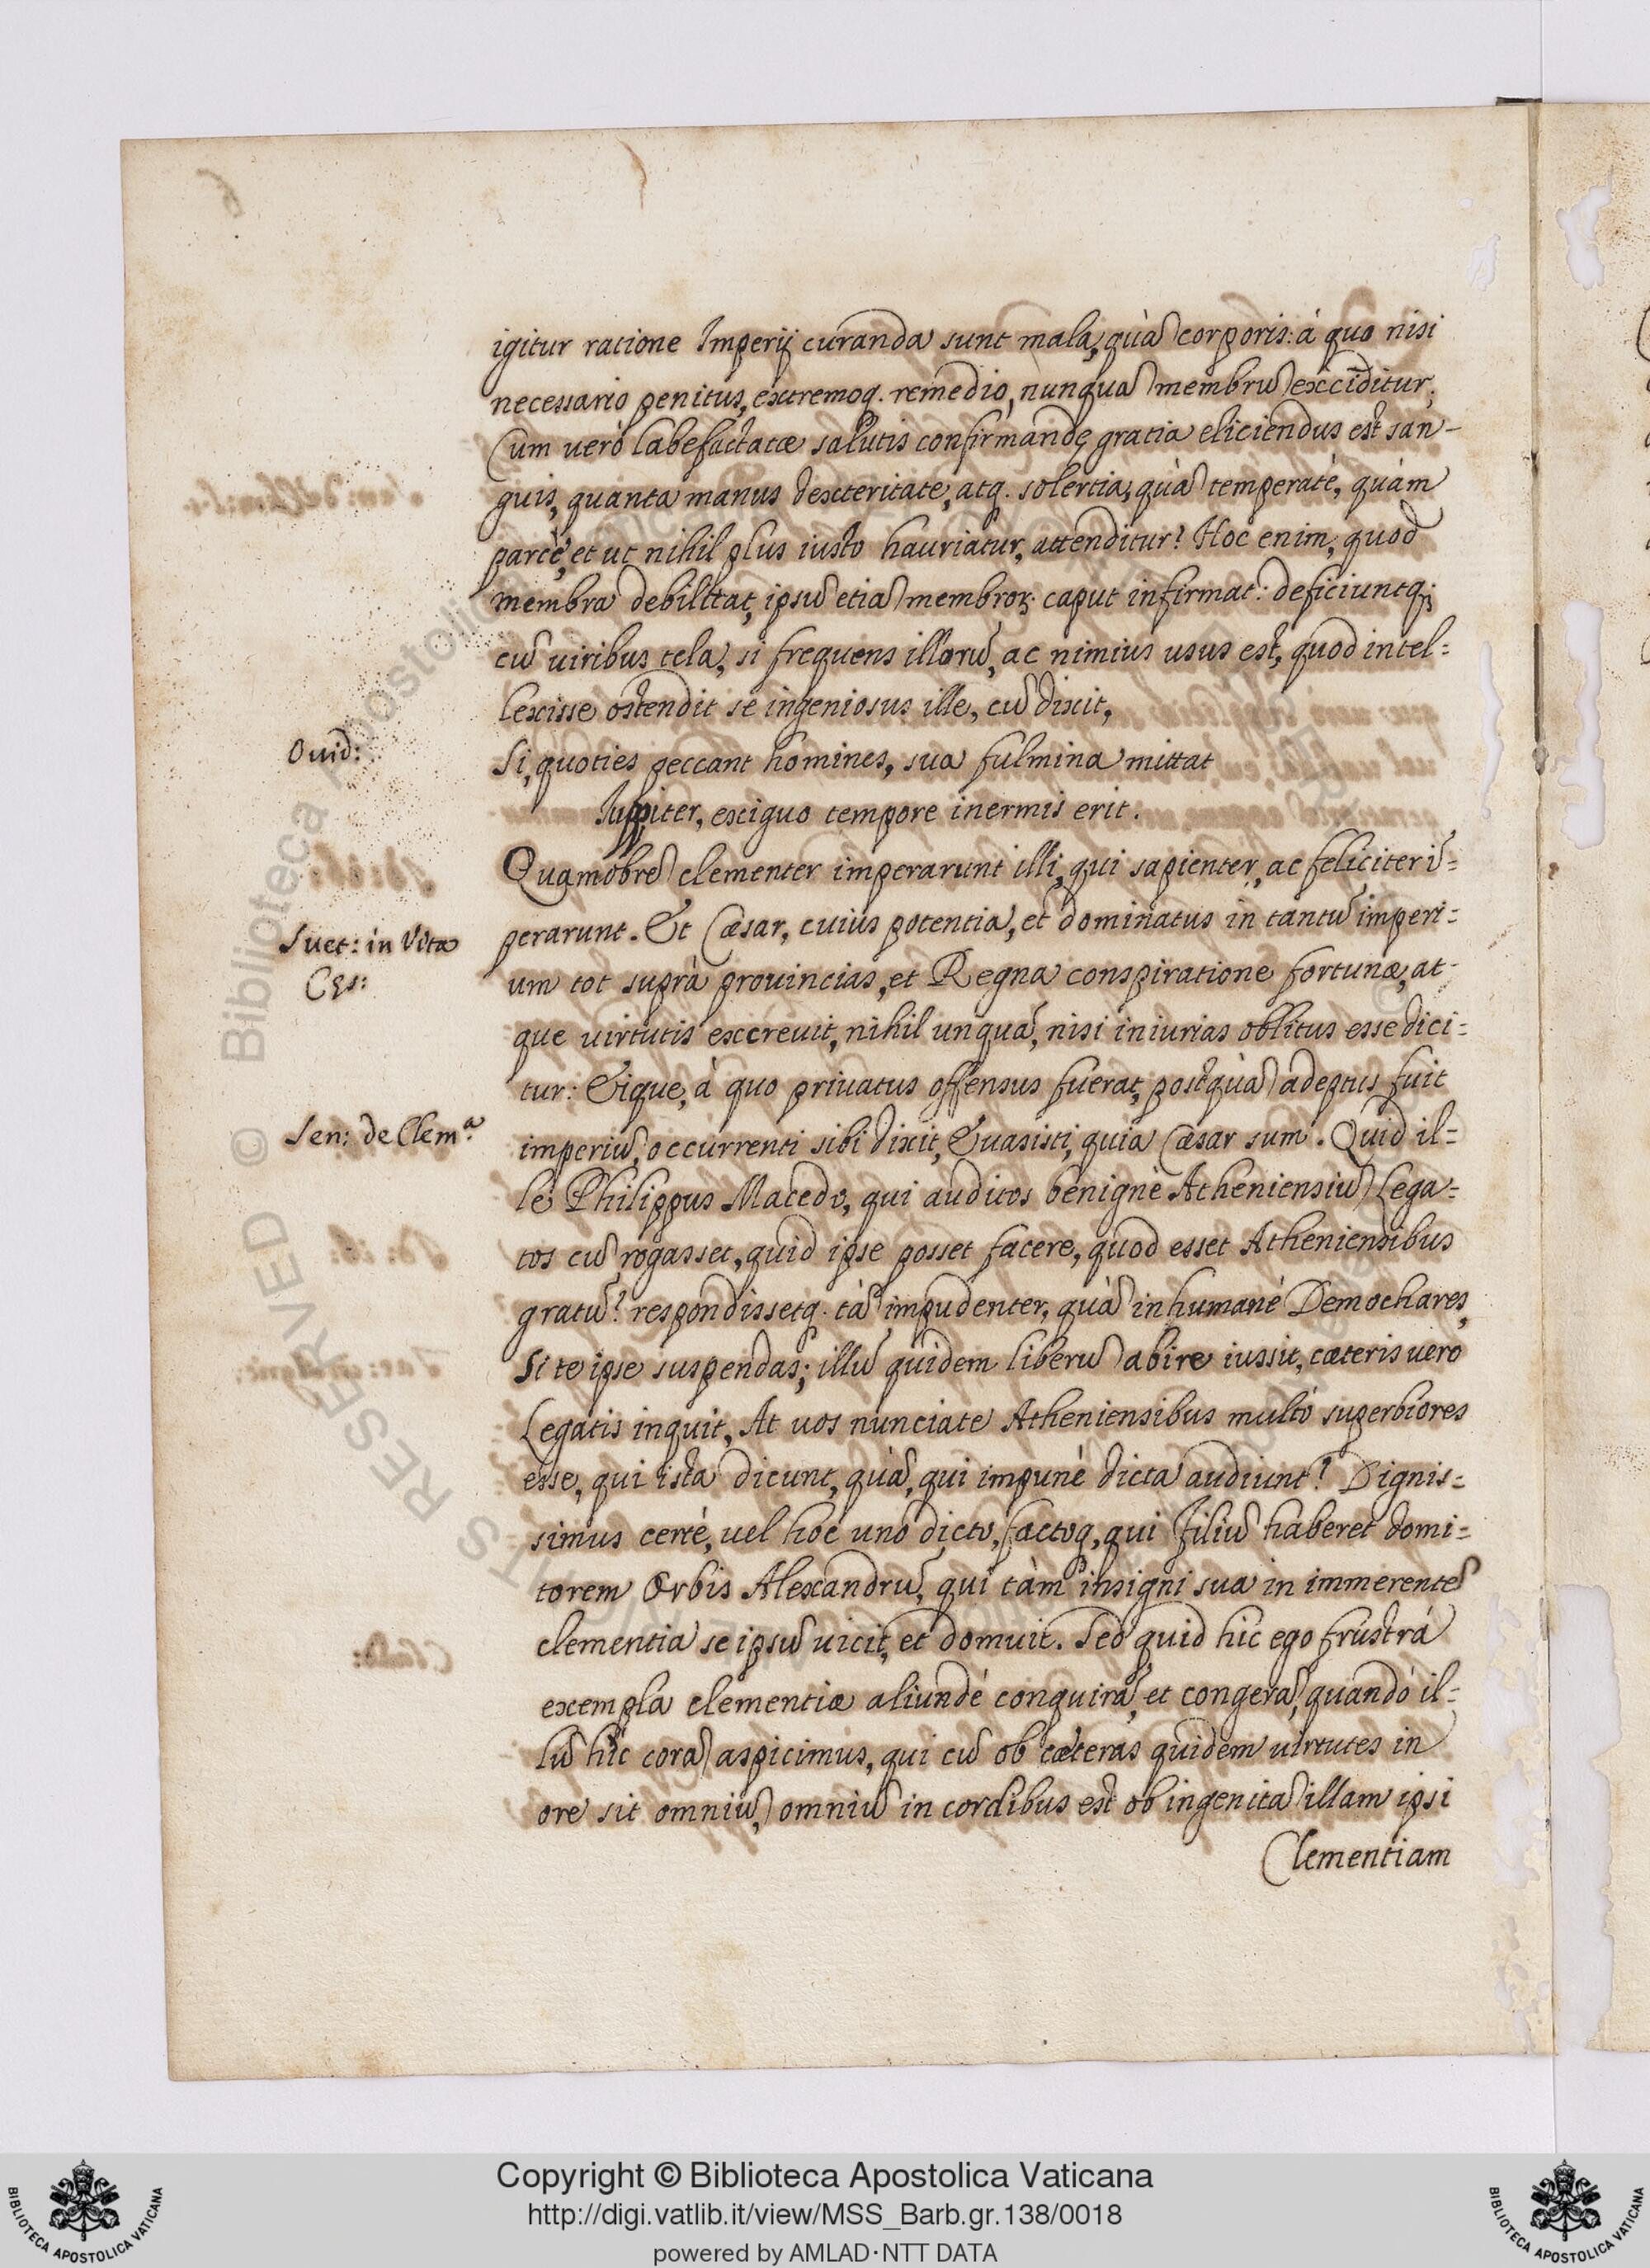 igitur ratione Imperij curanda sunt mala, quà̃ corporis: à quo nisi
necessario penitus, extremoq. remedio, nunquã membrũ exciditur;
Cum uerò labefactatæ salutis confirmandę gratia eliciendus est san-
guis, quanta manus dexteritate, atq. solertia, quà̃ temperatè, quàm
parcè, et ut nihil plus iusto hauriatur, attenditur? Hoc enim, quod
membra debilitat, ipsũ etiã membroꝝ caput infirmat: deficiuntq;
cũ uiribus tela, si frequens illorũ, ac nimius usus est, quod intel=
lexisse ostendit se ingeniosus ille, cũ dixit,
Ouid:
Si, quoties peccant homines, sua fulmina mittat
Iuppiter, exiguo tempore inermis erit.
Quamobrẽ clementer imperarunt illi, qui sapienter, ac feliciter ĩ=
perarunt. Et Cæsar, cuius potentia, et dominatus in tantũ imperi=
Suet: in Vita
Cęs:
um tot suprà prouincias, et Regna conspiratione fortunæ, at-
que uirtutis excreuit, nihil unquã, nisi iniurias oblitus esse dici=
tur: Eique, à quo priuatus offensus fuerat, postquà̃ adeptus fuit
Sen: de Clemᵃ.
imperiũ, occurrenti sibi dixit, Euasisti, quia Cæsar sum. Quid il=
le Philippus Macedo, qui auditos benignè Atheniensiũ Lega=
tos cũ rogasset, quid ipse posset facere, quod esset Atheniensibus
gratũ? respondissetq. tà̃ impudenter, quà̃ inhumanè Demochares,
Si te ipse suspendas; illũ quidem liberũ abire iussit, cæteris uero
Legatis inquit, At uos nunciate Atheniensibus multò superbiores
esse, qui ista dicunt, quà̃, qui impunè dicta audiunt? Dignis=
simus certè, uel hoc uno dicto, factoq, qui filiũ haberet domi=
torem Orbis Alexandrũ, qui tàm insigni sua in immerentẽ
clementia se ipsũ uicit, et domuit. Sed quid hic ego frustrà
exempla clementiæ aliundè conquirã, et congerã, quandò il=
lũ hic corã aspicimus, qui cũ ob cæteras quidem uirtutes in
ore sit omniũ, omniũ in cordibus est ob ingenitã illam ipsi
Clementiam
© Biblioteca Apostolica Vaticana
RIGHTS RESERVED
Copyright © Biblioteca Apostolica Vaticana
http://digi.vatlib.it/view/MSS_Barb.gr.138/0018
powered by AMLAD·NTT DATA
BIBLIOTECA APOSTOLICA VATICANA
BIBLIOTECA APOSTOLICA VATICANA